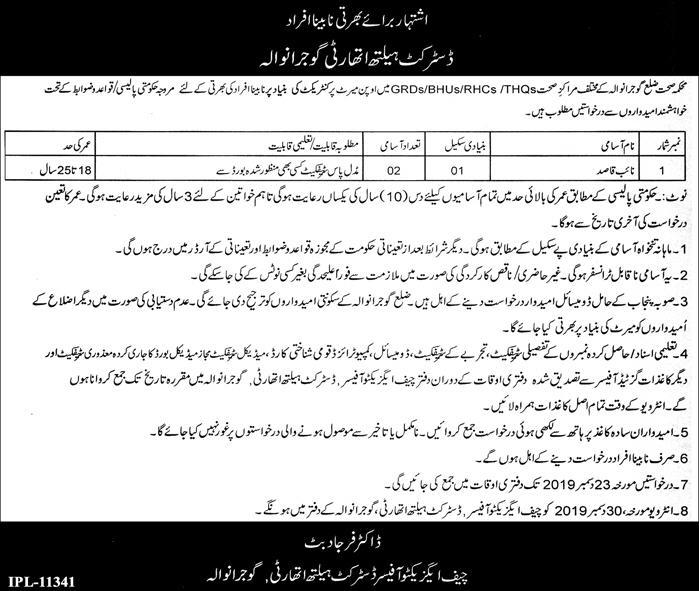 اشتہار برائے بھرتی نابینا افراد
ڈسٹرکٹ ہیلتھ اتھارٹی گوجرانوالہ
محکمہ صحت ضلع گوجرانوالہ کے مختلف مراکز صحت GRDs/BHUs/RHCs /THQs میں اوپن میرٹ پر کنٹریکٹ کی بنیاد پر نابینا افراد کی بھرتی کے لئے مروجہ حکومتی پالیسی/قواعد و ضوابط کے تحت
خواہشمند امیدواروں سے درخواستیں مطلوب ہیں۔
نمبر شمار نام آسامی بنیادی سکیل تعداد آسامی مطلوبہ قابلیت/تعلیمی قابلیت عمر کی حد
1 نائب قاصد 01 02 مڈل پاس سرٹیفکیٹ کسی بھی منظور شدہ بورڈ سے 18 تا 25 سال
نوٹ:۔ حکومتی پالیسی کے مطابق عمر کی بالائی حد میں تمام آسامیوں کیلئے دس (10) سال کی یکساں رعایت ہوگی تاہم خواتین کے لئے 3 سال کی مزید رعایت ہوگی۔ عمر کا تعین
درخواست کی آخری تاریخ سے ہوگا۔
1۔ ماہانہ تنخواہ آسامی کے بنیادی پے سکیل کے مطابق ہوگی۔ دیگر شرائط بعد از تعیناتی حکومت کے مجوزہ قواعد و ضوابط اور تعیناتی کے آرڈر میں درج ہوں گی۔
2۔ یہ آسامی ناقابل ٹرانسفر ہوگی۔ غیر حاضری/ناقص کارکردگی کی صورت میں ملازمت سے فوراً علیحدگی بغیر کسی نوٹس کے کی جاسکے گی۔
3۔ صوبہ پنجاب کے حامل ڈومیسائل امیدوار درخواست دینے کے اہل ہیں۔ ضلع گوجرانوالہ کے سکونتی امیدواروں کو ترجیح دی جائے گی۔ عدم دستیابی کی صورت میں دیگر اضلاع کے
اُمیدواروں کو میرٹ کی بنیاد پر بھرتی کیا جائے گا۔
4۔ تعلیمی اسناد/حاصل کردہ نمبروں کے تفصیلی سرٹیفکیٹ، تجربے کے سرٹیفکیٹ، ڈومیسائل، کمپیوٹرائزڈ قومی شناختی کارڈ، میڈیکل سرٹیفکیٹ مجاز میڈیکل بورڈ کا جاری کردہ معذوری سرٹیفکیٹ اور
دیگر کاغذات گزٹیڈ آفیسر سے تصدیق شدہ دفتری اوقات کے دوران دفتر چیف ایگزیکٹو آفیسر، ڈسٹرکٹ ہیلتھ اتھارٹی، گوجرانوالہ میں مقررہ تاریخ تک جمع کروانا ہوں
گے۔ انٹرویو کے وقت تمام اصل کاغذات ہمراہ لائیں۔
5۔ امیدواران سادہ کاغذ پر ہاتھ سے لکھی ہوئی درخواست جمع کروائیں۔ نامکمل یا تاخیر سے موصول ہونے والی درخواستوں پر غور نہیں کیا جائے گا۔
6۔ صرف نابینا افراد درخواست دینے کے اہل ہوں گے۔
7۔ درخواستیں مورخہ 23 دسمبر 2019 تک دفتری اوقات میں جمع کی جائیں گی۔
8۔ انٹرویو مورخہ، 30 دسمبر 2019 کو چیف ایگزیکٹو آفیسر، ڈسٹرکٹ ہیلتھ اتھارٹی، گوجرانوالہ کے دفتر میں ہونگے۔
ڈاکٹر فرجاد بٹ
چیف ایگزیکٹو آفیسر ڈسٹرکٹ ہیلتھ اتھارٹی، گوجرانوالہ
IPL-11341